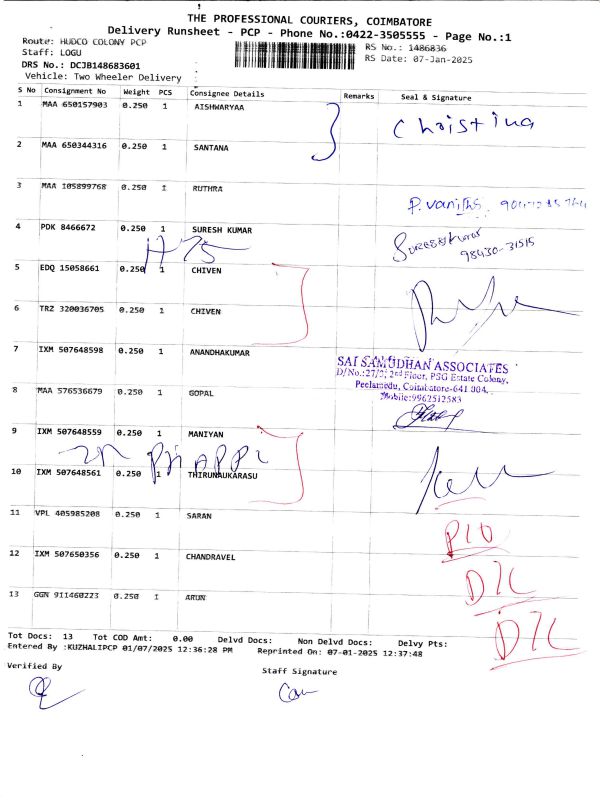 THE PROFESSIONAL COURIERS, COIMBATORE
Delivery Runsheet - PCP - Phone No.:0422-3505555 - Page No.:1
Route: HUDCO COLONY PCP
RS No.: 1486836
Staff: LOGU
RS Date: 07-Jan-2025
DRS No.: DCJB148683601
Vehicle: Two Wheeler Delivery
S No Consignment No Weight PCS Consignee Details Remarks Seal & Signature
1 MAA 650157903 0.250 1 AISHWARYAA
Christina
2 MAA 650344316 0.250 1 SANTANA
3 MAA 105899768 0.250 1 RUTHRA
P. Vanitha
4 PDK 8466672 0.250 1 SURESH KUMAR
Sureshkumar
98430-31515
5 EDQ 15058661 0.250 1 CHIVEN
6 TRZ 320036705 0.250 1 CHIVEN
7 IXM 507648598 0.250 1 ANANDHAKUMAR
SAI SAMUDHAN ASSOCIATES
D/No.:27/3, 2nd Floor, PSG Estate Colony,
Peelamedu, Coimbatore-641 004.
Mobile:9962512583
8 MAA 576536679 0.250 1 GOPAL
9 IXM 507648559 0.250 1 MANIYAN
10 IXM 507648561 0.250 1 THIRUNAUKARASU
11 VPL 405985208 0.250 1 SARAN
12 IXM 507650356 0.250 1 CHANDRAVEL
D/L
13 GGN 911460223 0.250 1 ARUN
D/L
Tot Docs: 13 Tot COD Amt: 0.00 Delvd Docs: Non Delvd Docs: Delvy Pts:
Entered By :KUZHALIPCP 01/07/2025 12:36:28 PM Reprinted On: 07-01-2025 12:37:48
Verified By
Staff Signature